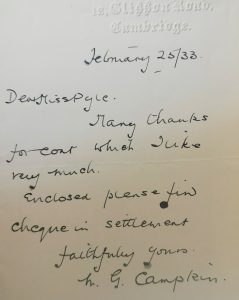 12, Glisson Road,
Cambridge.
February 25/33.
Dear Miss Pyle.
Many thanks
for coat which I like
very much.
Enclosed please fin
cheque in settlement
faithfully yours.
M. G. Campkin.